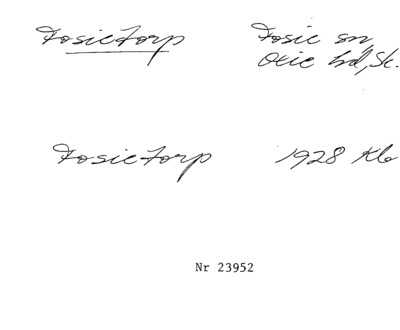 Fosietorp Fosie sn
Oxie hd, Sk.
Fosietorp 1928 Kb
Nr 23952